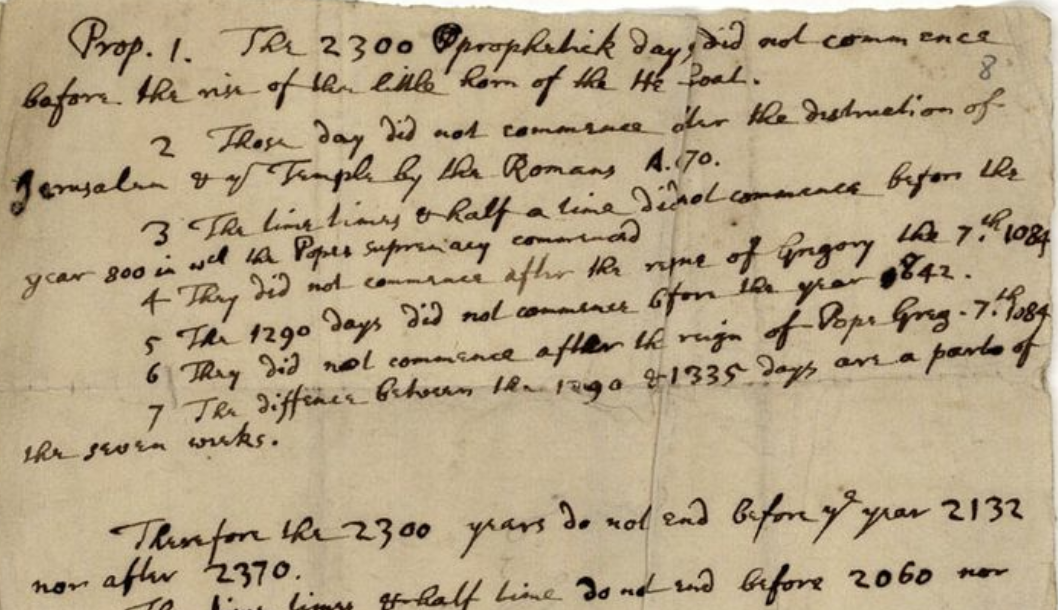 Prop. 1. The 2300 prophetick days did not commence
8
before the rise of the little horn of the He Goat.
2 Those day did not commence after the destruction of
Jerusalem & yᵉ Temple by the Romans A. 70.
3 The time times & half a time did not commence before the
year 800 in wᶜʰ the Popes supremacy commenced
4 They did not commence after the reigne of Gregory the 7.ᵗʰ 1084
5 The 1290 days did not commence before the year 842.
6 They did not commence after the reign of Pope Greg. 7.ᵗʰ 1084
7 The diffence between the 1290 & 1335 days are a parts of
the seven weeks.
Therefore the 2300 years do not end before yᵉ year 2132
nor after 2370.
The time times & half time do not end before 2060 nor